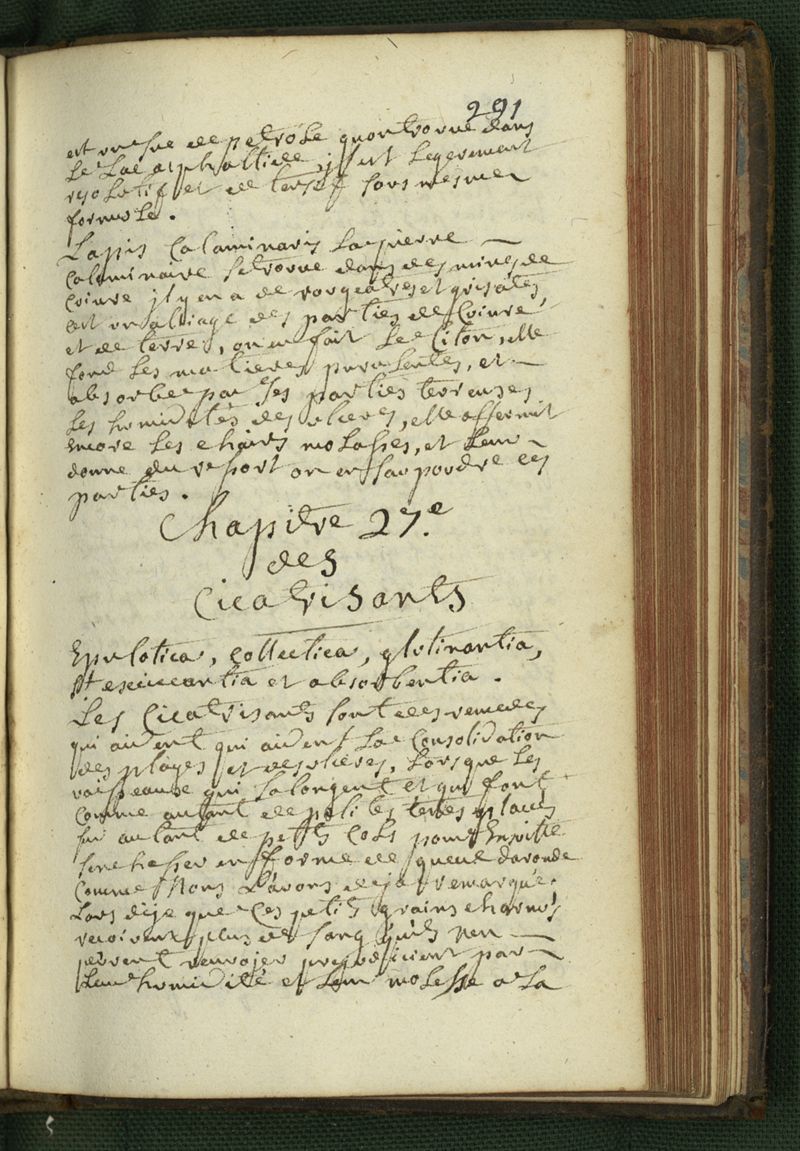 291
est un suc de petrole qu'on trouve dans
le Lac asphaltide, il est legerement
resolutif et detersif sous mesme
formule.
Lapis Calaminaris La pierre
Calaminaire se trouve dans des mines de
Coivre il y en a de rougeatres et grisates,
est un alliage des parties de Coivre
et de terre, on en fait Le Citon, elle
fond Les matieres purulentes, et
absorbe par ses parties terreuses
Les humidités des ulceres, elle affermit
encore Les chairs molasses, et Leur
donne du resort on en saupoudre ces
parties.
Chapitre 27.e
des
Cicatrisants
Epulotica, collectica, glutinantia,
et exiccantia et absorbentia.
Les Cicatrisants sont des remedes
qui aident qui aident La Consolidation
des playes et des ulceres, Lorsque Les
vaisseaux qui s'alongent et qui font
Comme autant de petites testes placés
sur autant de petits Cols pour Ensuitte
s'enchasser en forme de queue d'aronde
Comme Nous L'avons deja remarqué.
Lors dije que Ces petits grains charnus
recoivent plus de sang qu'ils n'en
peuvent renvoyer prejudicient par
Leur humidité et Leur molesse a La